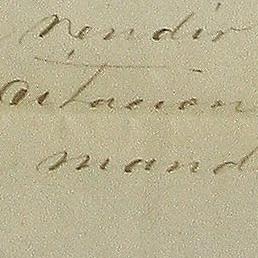 rendir
citacion
mand